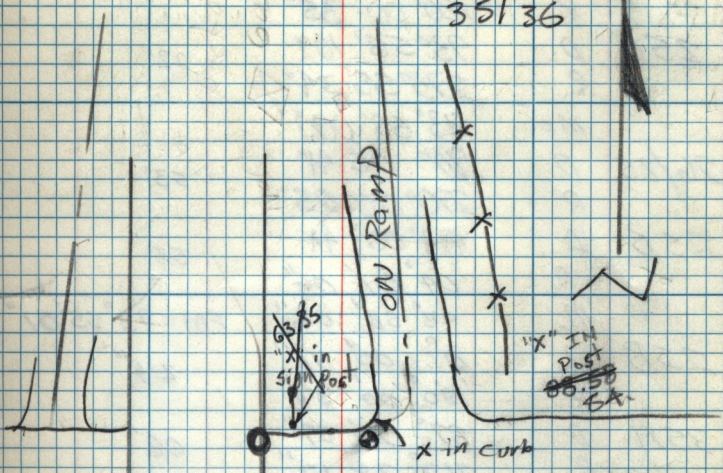 35/36
ON Ramp
63 35
"X" in
sign Post
"X" IN
Post
x in curb